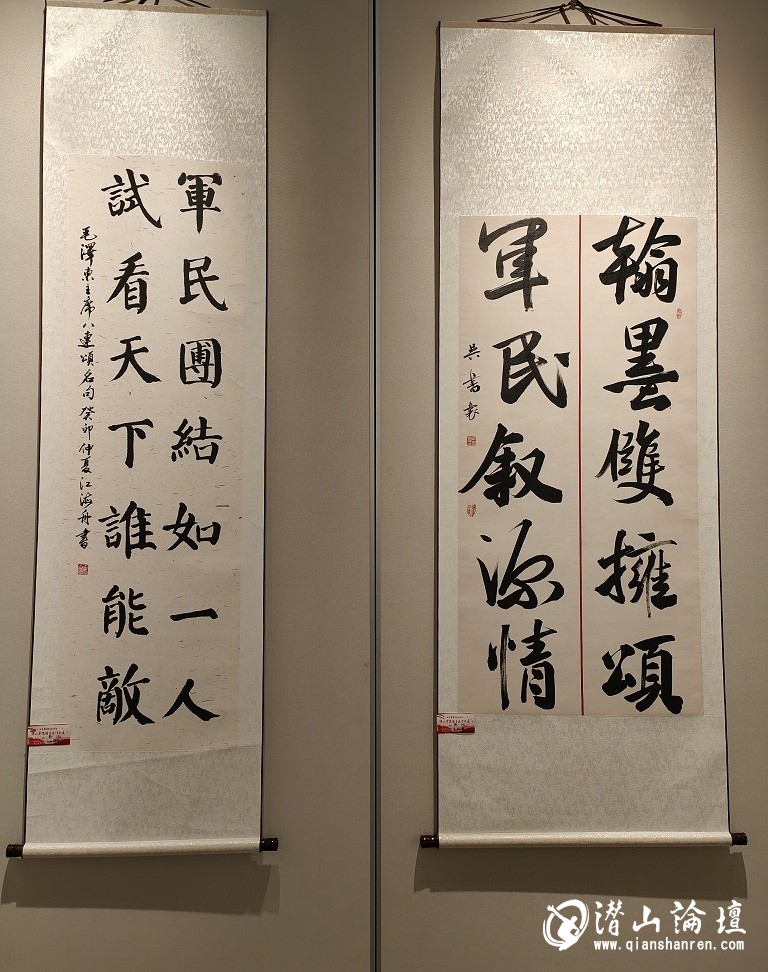 翰墨雙擁頌
軍民叙深情
吴書
軍民團結如一人
試看天下誰能敵
毛澤東主席八連頌名句癸卯仲夏江海舟書
潜山論壇
www.qianshanren.com